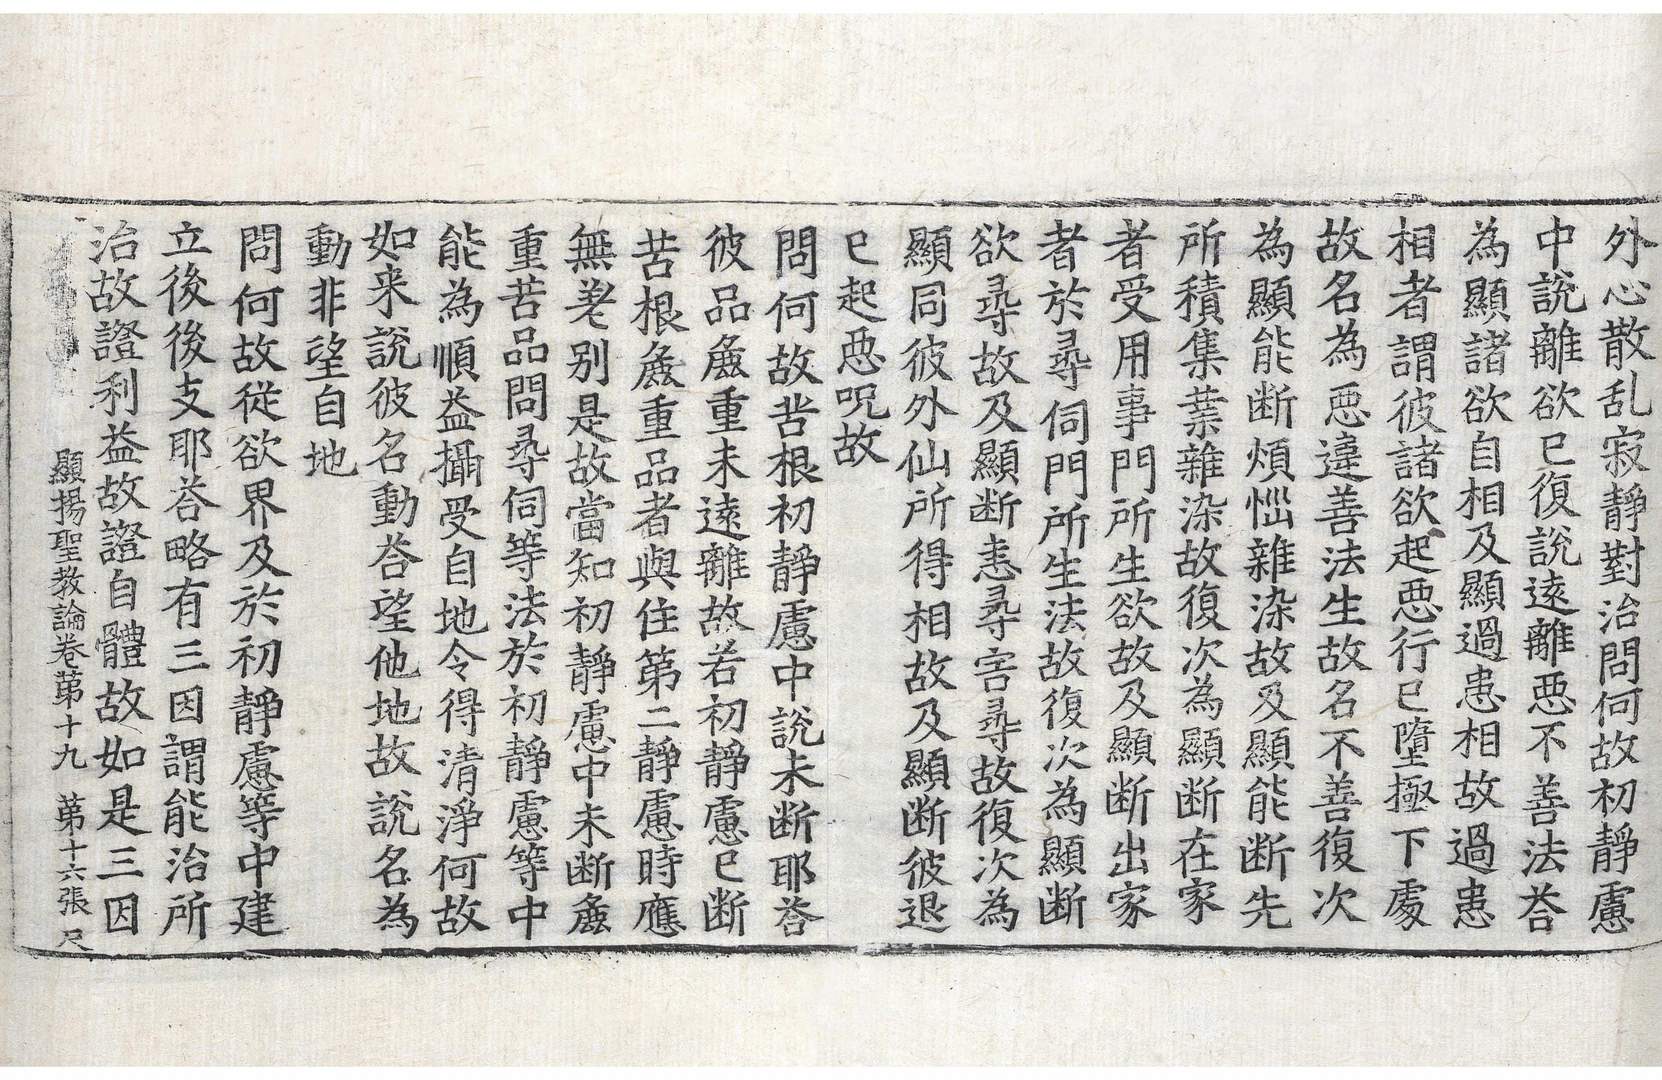 外心散乱寂靜對治問何故初靜慮
中說離欲已復說遠離惡不善法荅
為顯諸欲自相及顯過患相故過患
相者謂彼諸欲起惡行已墮極下處
故名為惡違善法生故名不善復次
為顯能断煩惱雜染故及顯能断先
所積集業雜染故復次為顯断在家
者受用事門所生欲故及顯断出家
者於尋伺門所生法故復次為顯断
欲尋故及顯断恚尋害尋故復次為
顯同彼外仙所得相故及顯断彼退
已起惡呪故
問何故苦根初靜慮中說未断耶荅
彼品麁重未遠離故若初靜慮已断
苦根麁重品者與住第二靜慮時應
無差别是故當知初靜慮中未断麁
重苦品問尋伺等法於初靜慮等中
能為順益攝受自地令得清淨何故
如来說彼名動荅望他地故說名為
動非望自地
問何故從欲界及於初靜慮等中建
立後後支耶荅略有三因謂能治所
治故證利益故證自體故如是三因
顯揚聖教論卷苐十九 苐十六張 尺